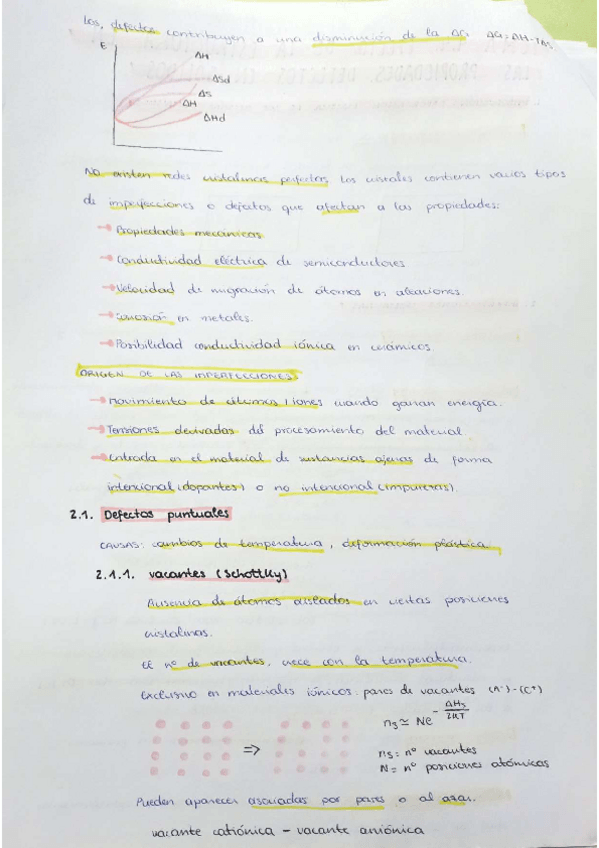 Los defectos contribuyen a una disminución de la ΔG. ΔG=ΔH-TΔS
E
ΔH
ΔSd
ΔS
ΔH
ΔHd
No existen redes cristalinas perfectas, los cristales contienen varios tipos
de imperfecciones o defectos que afectan a las propiedades:
Propiedades mecánicas
Conductividad eléctrica de semiconductores
Velocidad de migración de átomos en aleaciones.
Corrosión en metales.
Posibilidad conductividad iónica en cerámicos
ORIGEN DE LAS IMPERFECCIONES
Movimiento de átomos/iones cuando ganan energía.
Tensiones derivadas del procesamiento del material
Entrada en el material de sustancias ajenas de forma
intencional (dopantes) o no intencional (impurezas).
2.1. Defectos puntuales
CAUSAS: cambios de temperatura, deformación plástica
2.1.1. vacantes (Schottky)
Ausencia de átomos aislados en ciertas posiciones
cristalinas.
El nº de vacantes, crece con la temperatura.
Exclusivo en materiales iónicos: pares de vacantes (A⁻)-(C⁺)
ns ≃ Ne^-ΔHs/2KT
=>
ns: nº vacantes
N= nº posiciones atómicas
Pueden aparecer asociadas por pares o al azar.
vacante catiónica - vacante aniónica